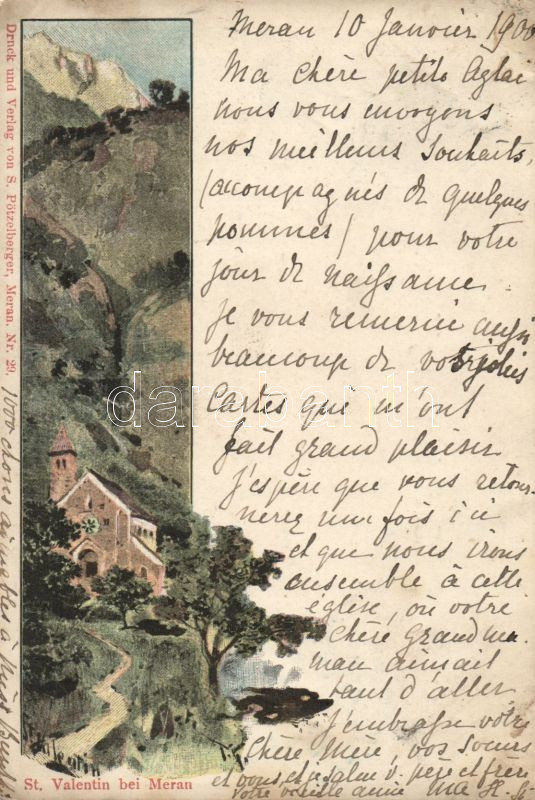 Meran 10 Janvier 1900
Ma chère petite Aglaï
nous vous envoyons
nos meilleurs souhaits,
(acompagnés de quelques
pommes) pour votre
jour de naissance.
Je vous remercie aussi
beaucoup de vos jolies
cartes qui m'ont
fait grand plaisir
J'espère que vous retour-
nerez une fois ici
et que nous irons
ensemble à cette
église, où votre
chère grandma-
man aimait
tant d'aller
J'embrasse votre
Chère Mère, vos sœurs
et vous, et je salue v. père et frère
votre vieille amie
1000 choses aimables à Miss
Druck und Verlag von S. Pötzelberger, Meran. Nr. 29.
St. Valentin
St. Valentin bei Meran
darabanth